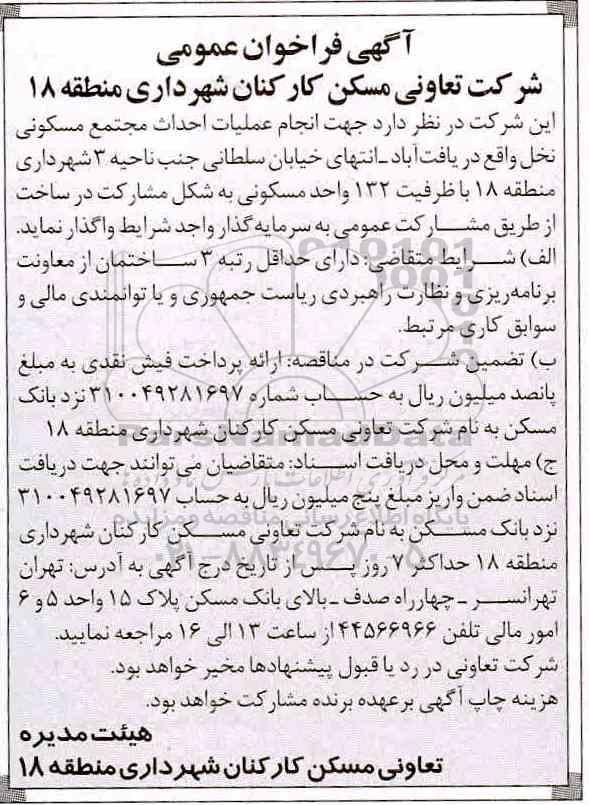 آگهی فراخوان عمومی
شرکت تعاونی مسکن کارکنان شهرداری منطقه ۱۸
این شرکت در نظر دارد جهت انجام عملیات احداث مجتمع مسکونی
نخل واقع در یافت‌آباد ـ انتهای خیابان سلطانی جنب ناحیه ۳ شهرداری
منطقه ۱۸ با ظرفیت ۱۳۲ واحد مسکونی به شکل مشارکت در ساخت
از طریق مشارکت عمومی به سرمایه‌گذار واجد شرایط واگذار نماید.
الف) شرایط متقاضی: دارای حداقل رتبه ۳ ساختمان از معاونت
برنامه‌ریزی و نظارت راهبردی ریاست جمهوری و یا توانمندی مالی و
سوابق کاری مرتبط.
ب) تضمین شرکت در مناقصه: ارائه پرداخت فیش نقدی به مبلغ
پانصد میلیون ریال به حساب شماره ۳۱۰۰۴۹۲۸۱۶۹۷ نزد بانک
مسکن به نام شرکت تعاونی مسکن کارکنان شهرداری منطقه ۱۸
ج) مهلت و محل دریافت اسناد: متقاضیان می‌توانند جهت دریافت
اسناد ضمن واریز مبلغ پنج میلیون ریال به حساب ۳۱۰۰۴۹۲۸۱۶۹۷
نزد بانک مسکن به نام شرکت تعاونی مسکن کارکنان شهرداری
منطقه ۱۸ حداکثر ۷ روز پس از تاریخ درج آگهی به آدرس: تهران
تهرانسر ـ چهارراه صدف ـ بالای بانک مسکن پلاک ۱۵ واحد ۵ و ۶
امور مالی تلفن ۴۴۵۶۶۹۶۶ از ساعت ۱۳ الی ۱۶ مراجعه نمایید.
شرکت تعاونی در رد یا قبول پیشنهادها مخیر خواهد بود.
هزینه چاپ آگهی برعهده برنده مشارکت خواهد بود.
هیئت مدیره
تعاونی مسکن کارکنان شهرداری منطقه ۱۸
ParsNamadData
پایگاه اطلاع رسانی مناقصه و مزایده
۰۲۱-۸۸۳۴۹۶۷۰-۵